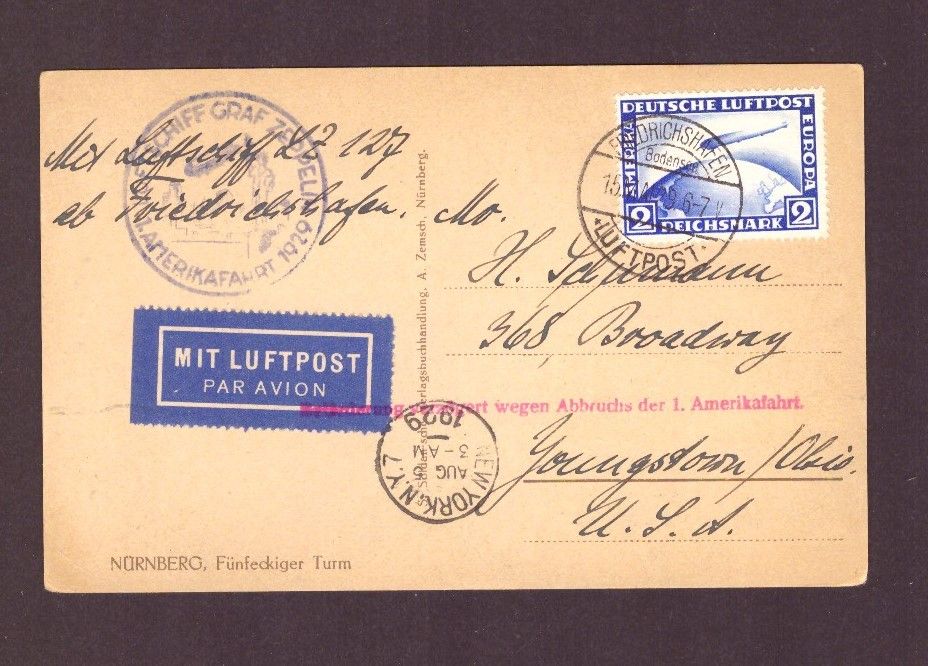 Mit Luftschiff LZ 127
ab Friedrichshafen.
LUFTSCHIFF GRAF ZEPPELIN
AMERIKAFAHRT 1929
MIT LUFTPOST
PAR AVION
NÜRNBERG, Fünfeckiger Turm
Verlagsbuchhandlung. A. Zemsch, Nürnberg.
DEUTSCHE LUFTPOST
AMERIKA
EUROPA
2 REICHSMARK 2
FRIEDRICHSHAFEN
Bodensee
15. 6-7 V
LUFTPOST
H.
368, Broadway
Beförderung verzögert wegen Abbruchs der 1. Amerikafahrt.
Youngstown/Ohio.
U. S. A.
NEW YORK, N.Y. 7
AUG 5
3-AM
1929